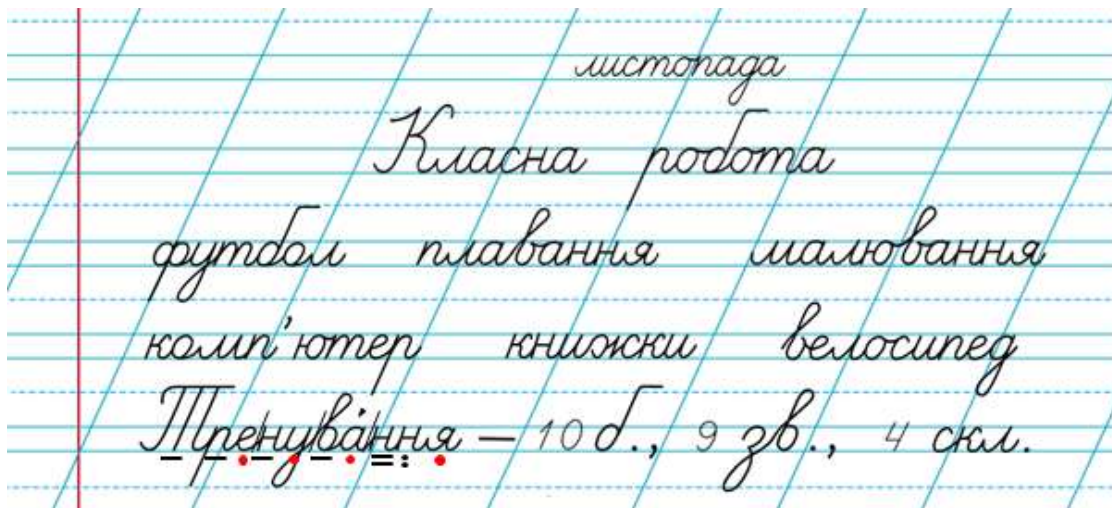 листопада
Класна робота
футбол плавання малювання
комп'ютер книжки велосипед
Тре/ну/ва́/ння – 10 б., 9 зв., 4 скл.